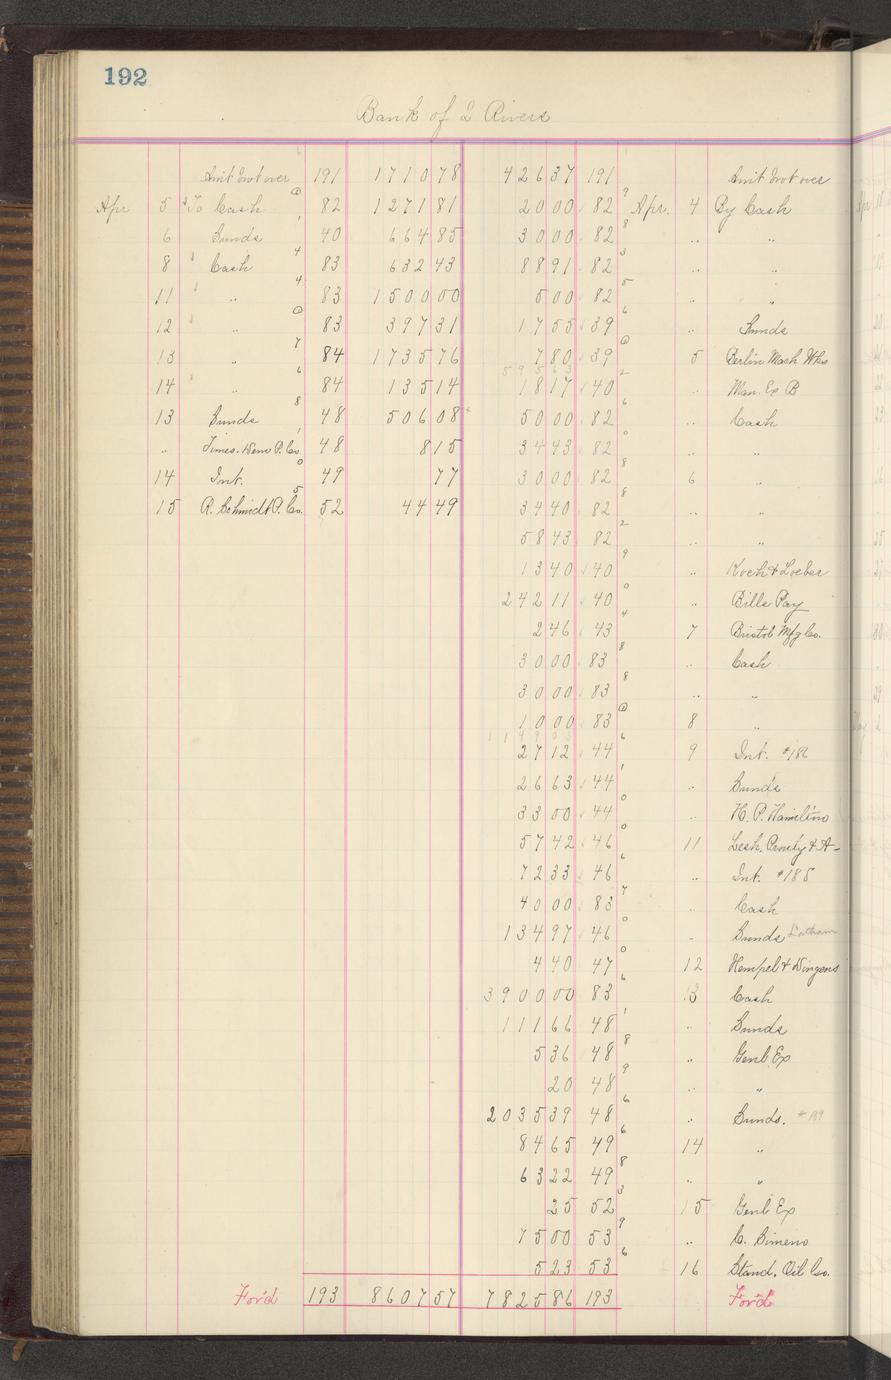 192
Bank of 2 Rivers
Amt brot over 191 1710 78 426 37 191 Amt brot over
Apr 5 To Cash 82 1271 81 20 00 82 Apr. 4 By Cash
6 Sunds 40 664 85 30 00 82 " "
8 " Cash 83 632 43 88 91 82 " "
11 " " 83 1500 00 5 00 82 " "
12 " " 83 397 31 17 55 39 " Sunds
13 " 84 1735 76 7 80 39 5 Berlin Mach Wks
14 " " 84 135 14 18 17 40 " Man. Ex B
13 Sunds 48 506 08 50 00 82 " Cash
" Times-Dem P. Co 48 8 15 34 43 82 " "
14 Int. 49 77 30 00 82 6 "
15 R. Schmidt P. Co. 52 44 49 34 40 82 " "
58 43 82 " "
13 40 40 " Koch & Loeber
242 11 40 " Bills Pay
2 46 43 7 Bristol Mfg Co.
30 00 83 " Cash
30 00 83 " "
10 00 83 8 "
27 12 44 9 Int. #186
26 63 44 " Sunds
33 00 44 " H. P. Hamilton
57 42 46 11 Lesh, Prouty & A-
72 33 46 " Int. #188
40 00 83 " Cash
134 97 46 " Sunds Latham
4 40 47 12 Hempel & Dingens
3900 00 83 13 Cash
111 66 48 " Sunds
5 36 48 " Genl Ex
20 48 " "
2035 39 48 " Sunds. #189
84 65 49 14 "
63 22 49 " "
25 52 15 Genl Ex
75 00 53 " C. Simens
5 23 53 16 Stand. Oil Co.
For'd 193 8607 57 7825 86 193 For'd